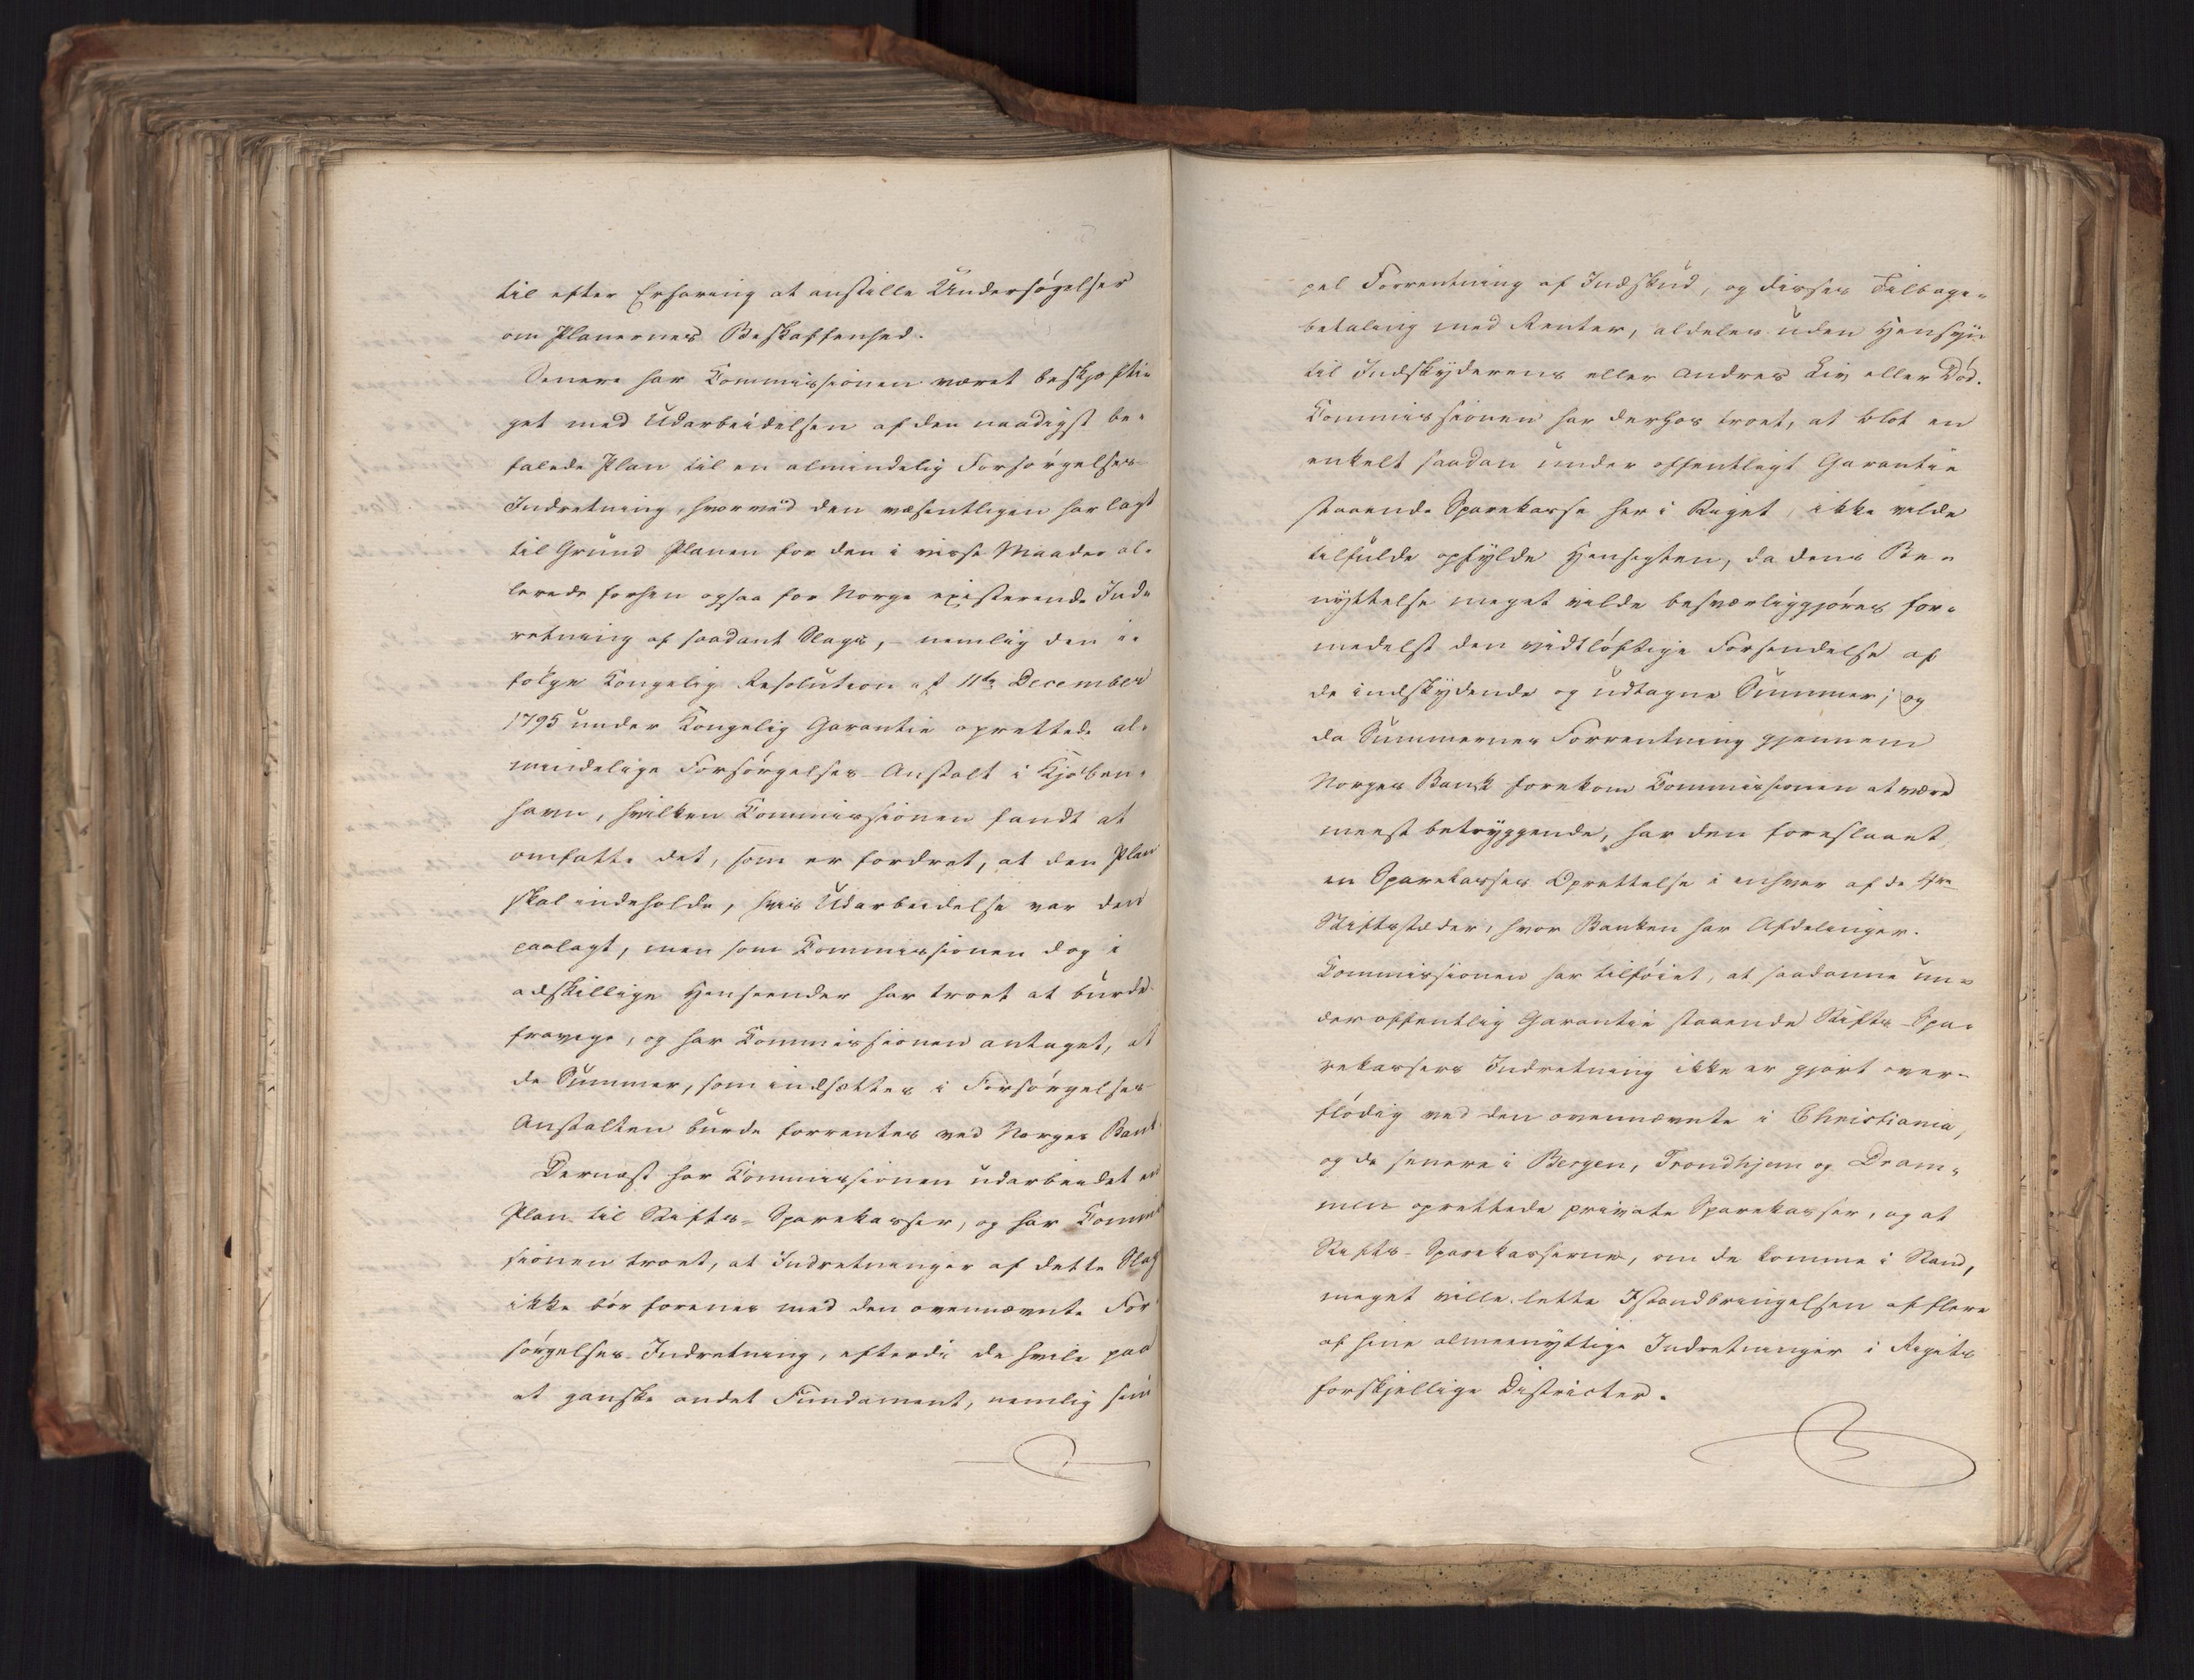 til efter Erfaring at anstille Undersøgelser
om Planernes Beskaffenhed.
Senere har Commissionen været beskjæfti-
get med Udarbeidelsen af den naadigst be-
falede Plan til en almindelig Forsørgelses-
Indretning, hvorved den væsentligen har lagt
til Grund Planen for den i visse Maader al-
lerede forhen ogsaa for Norge existerende Ind-
retning af saadant Slags, nemlig den i-
følge Kongelig Resolution af 11te December
1795 under Kongelig Garantie oprettede al-
mindelige Forsørgelses-Anstalt i Kjøben-
havn, hvilken Commissionen fandt at
omfatte det, som er fordret, at den Plan
skal indeholde, hvis Udarbeidelse var den
paalagt, men som Commissionen dog i
adskillige Henseender har troet at burde
fravige, og har Commissionen antaget, at
de Summer, som indsættes i Forsørgelses
Anstalten burde forrentes ved Norges Bank.
Dernæst har Commissionen udarbeidet en
Plan til Stifts-Sparekasser, og har Commis
sionen troet, at Indretninger af dette Slags
ikke bør forenes med den ovennævnte For
sørgelses-Indretning, efterdi de hvile paa
et ganske andet Fundament, nemlig sim
pel Forrentning af Indskud, og disses Tilbage-
betaling med Renter, aldeles uden Hensyn
til Indskyderens eller Andres Liv eller Død.
Commissionen har derhos troet, at blot en
enkelt saadan under offentligt Garantie
staaende Sparekasse her i Riget, ikke vilde
tilfulde opfylde Hensigten, da dens Be-
nyttelse meget vilde besværliggjøres for-
medelst den vidtløftige Forsendelse af
de indskydende og udtagne Summer; og
da Summernes Forrentning gjennem
Norges Bank forekom Commissionen at være
meest betryggende, har den foreslaaet
en Sparekasses Oprettelse i enhver af de fire
Stiftsstæder, hvor Banken har Afdelinger.
Commissionen har tilføiet, at saadanne un-
der offentlig Garantie staaende Stifts-Spa-
rekassers Indretning ikke er gjort over-
flødig ved den ovennævnte i Christiania,
og de senere i Bergen, Trondhjem og Dram-
men oprettede private Sparekasser, og at
Stifts-Sparekasserne, om de komme i Stand,
meget ville lette Istandbringelsen af flere
af hine almeennyttige Indretninger i Rigets
forskjellige Districter.